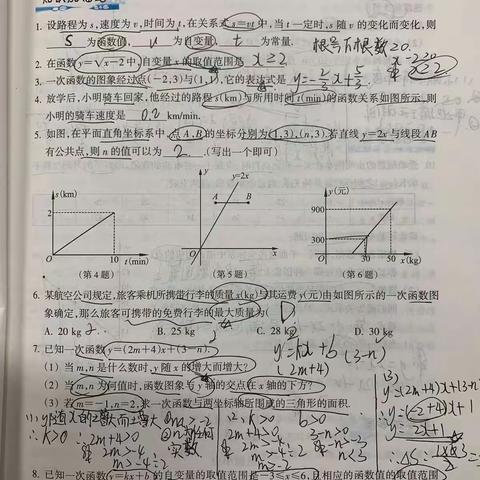 1. 设路程为 s,速度为 v,时间为 t,在关系式 s=vt 中,当 t 一定时,s 随 v 的变化而变化,则
S 为函数值, u 为自变量, t 为常量. 根号下根数≥0.
2. 在函数 y=√x-2 中,自变量 x 的取值范围是 x≥2. x-2≥0
x≥2
3. 一次函数的图象经过点(-2,3)与(1,1),它的表达式是 y=-2/3x+5/3.
4. 放学后,小明骑车回家,他经过的路程 s(km)与所用时间 t(min)的函数关系如图所示,则
小明的骑车速度是 0.2 km/min.
5. 如图,在平面直角坐标系中,点 A,B 的坐标分别为(1,3),(n,3).若直线 y=2x 与线段 AB
有公共点,则 n 的值可以为 2 .(写出一个即可)
s(km)
2
O
10
t(min)
(第 4 题)
y
y=2x
A
B
O
x
(第 5 题)
y(元)
900
300
O
30
50
x(kg)
(第 6 题)
6. 某航空公司规定,旅客乘机所携带行李的质量 x(kg)与其运费 y(元)由如图所示的一次函数图
象确定,那么旅客可携带的免费行李的最大质量为( D )
A. 20 kg
B. 25 kg
C. 28 kg
D. 30 kg
7. 已知一次函数 y=(2m+4)x+(3-n). y=kx+b
(2m+4) (3-n)
(1) 当 m,n 是什么数时,y 随 x 的增大而增大?
(2) 当 m,n 为何值时,函数图象与 y 轴的交点在 x 轴的下方?
(3) 若 m=-1,n=2,求一次函数与两坐标轴所围成的三角形的面积.
(1) y随x的增大而增大
∴k>0
∴2m+4>0
2m>-4
m>-4÷2
m>-2
n为任何
实数
2m+4>0
2m>-4
m>-2
b>0
3-n>0
n<3
(3)
y=(2m+4)x+(3-n)
y=(-2+4)x+1
y=2x+1
8. 已知一次函数 y=kx+b 的自变量的取值范围是-3≤x≤6,且相应的函数值的取值范围